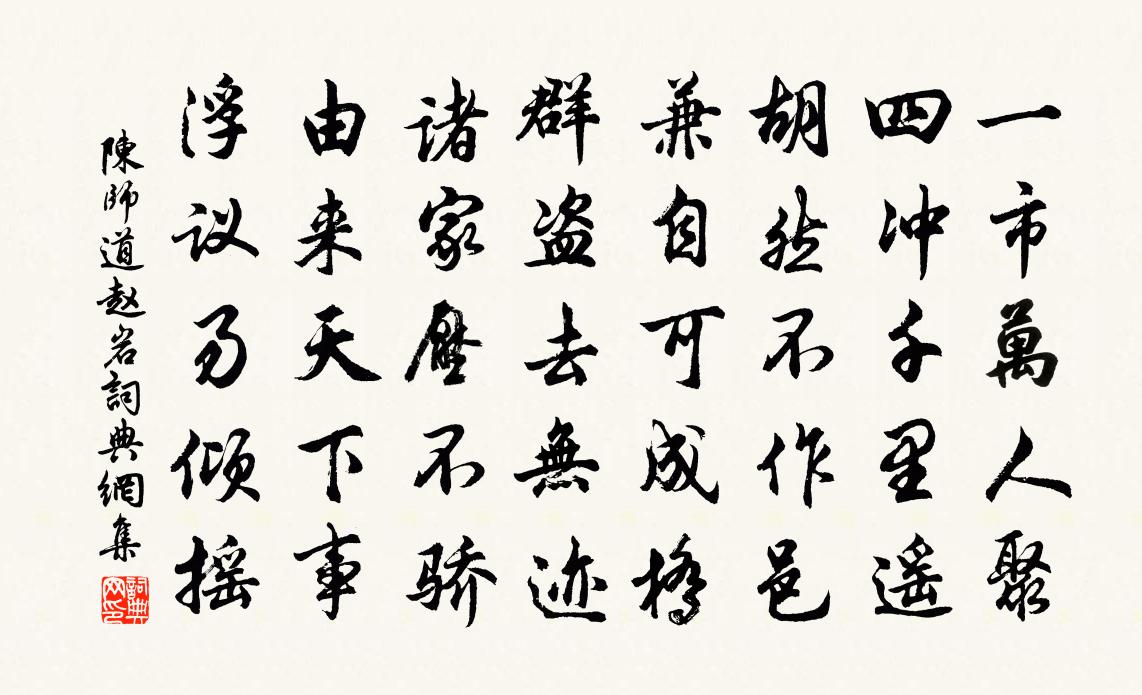 一市萬人聚
四冲千里遥
胡然不作邑
兼自可成橋
群盗去無迹
诸家壓不骄
由来天下事
浮议易倾摇
陳師道趙岩詞典網集
詞典